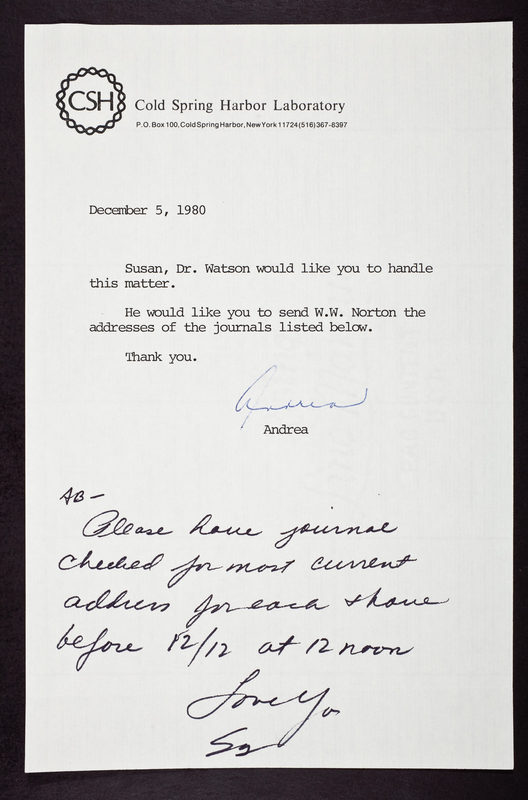 CSH
Cold Spring Harbor Laboratory
P.O. Box 100, Cold Spring Harbor, New York 11724 (516) 367-8397
December 5, 1980
Susan, Dr. Watson would like you to handle
this matter.
He would like you to send W.W. Norton the
addresses of the journals listed below.
Thank you.
Andrea
Andrea
AB-
Please have journal
checked for most current
address for each & have
before 12/12 at 12 noon
Love Ya